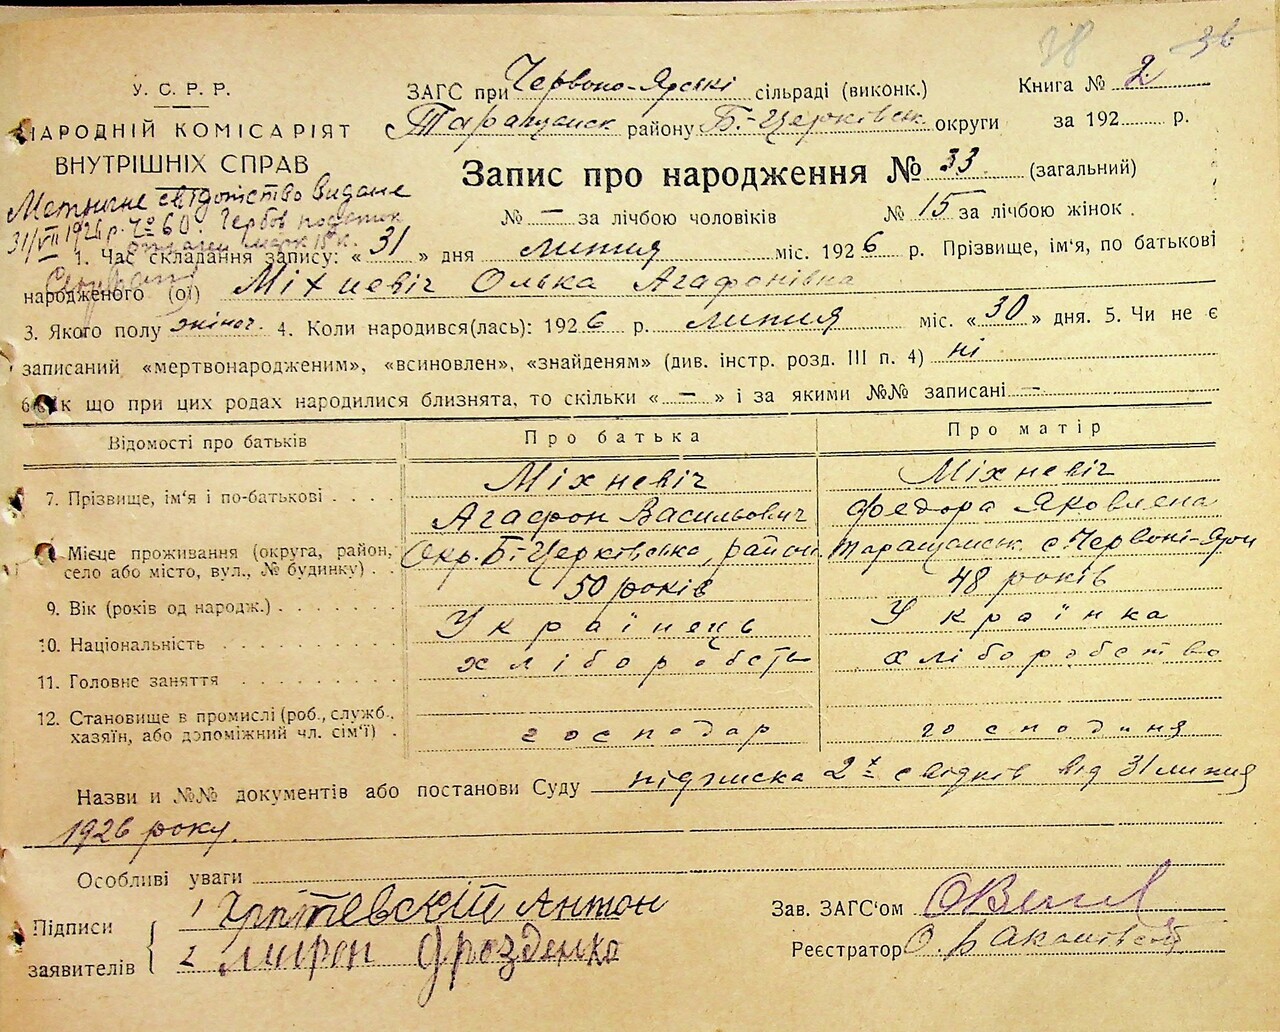 У. С. Р. Р.
НАРОДНІЙ КОМІСАРІЯТ
ВНУТРІШНІХ СПРАВ
ЗАГС при Червоно-Ярські сільраді (виконк.)
Таращанск району Б.-Церківськ округи
Книга № 2
за 192 р.
Запис про народження № 33. (загальний)
№ — за лічбою чоловіків № 15 за лічбою жінок.
Метричне свідоцтво видане
31/VII 1926 р. № 60. Гербов
1. Час складання запису: « 31 » дня липня міс. 1926 р. Прізвище, ім'я, по батькові
народженого (ої) Міхневіч Олька Агафонівна
3. Якого полу жіноч. 4. Коли народився(лась): 1926 р. липня міс. « 30 » дня. 5. Чи не є
записаний «мертвонародженим», «всиновлен», «знайденям» (див. інстр. розд. III п. 4) ні
6. Як що при цих родах народилися близнята, то скільки « — » і за якими №№ записані —
Відомості про батьків Про батька Про матір
7. Прізвище, ім'я і по-батькові Міхневіч Міхневіч
Агафон Васильович Федора Яковлена
Місце проживання (округа, район, село або місто, вул., № будинку) Окр. Б-Церковська, район. Таращанск с. Червоні-Яри
9. Вік (років од народж.) 50 років 48 років
10. Національність Українець Українка
11. Головне заняття хліборобств хліборобство
12. Становище в промислі (роб., служб., хазяїн, або допоміжний чл. сім'ї) господар господиня
Назви и №№ документів або постанови Суду підписка 2х свідків від 31 липня
1926 року.
Особливі уваги
Підписи заявителів
1 Антон
2 Мирон Дрозденко
Зав. ЗАГС'ом
Реєстратор О.